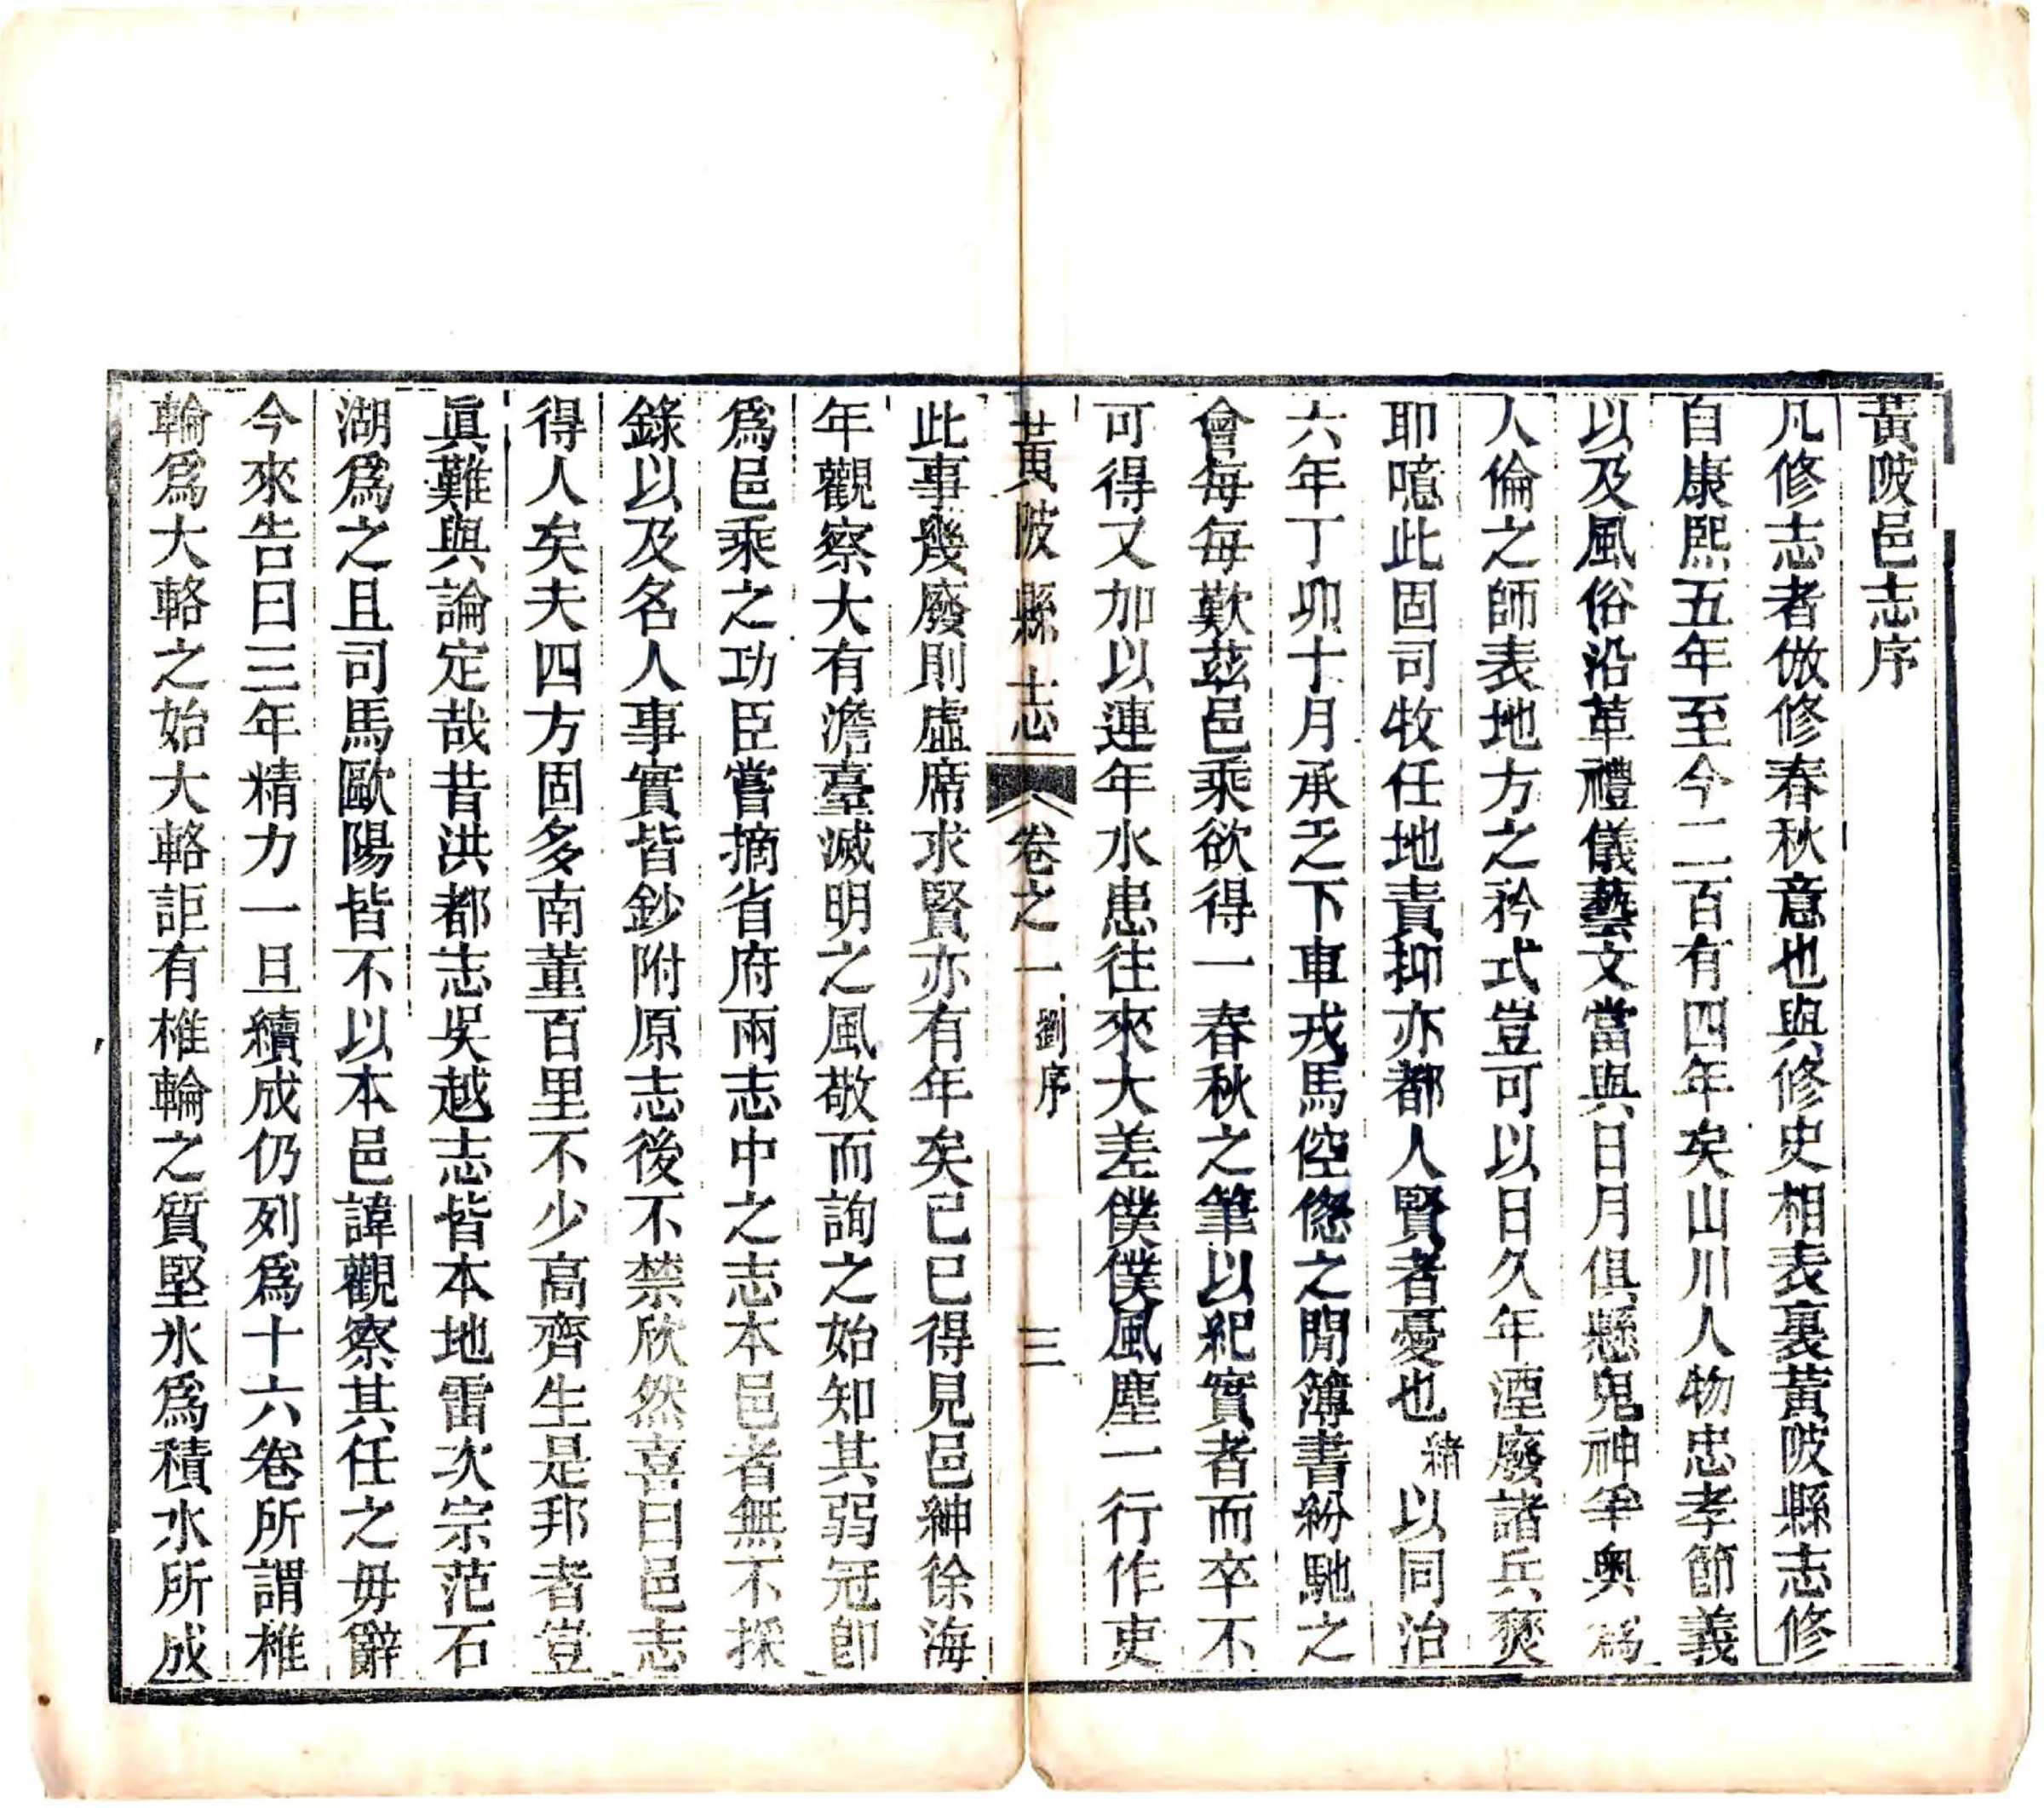 黃陂邑志序
凡修志者倣修春秋意也與修史相表裏黃陂縣志修
自康熙五年至今二百有四年矣山川人物忠孝節義
以及風俗沿革禮儀藝文當與日月俱懸鬼神爭奥爲
人倫之師表地方之矜式豈可以日久年湮廢諸兵燹
耶噫此固司牧任地責抑亦都人賢者憂也緒以同治
六年丁卯十月承乏下車戎馬倥傯之閒簿書紛馳之
會每每歎茲邑乘欲得一春秋之筆以紀實者而卒不
可得又加以連年水患往來大差僕僕風塵一行作吏
黃陂縣志 卷之一 劉序 三
此事幾廢則虛席求賢亦有年矣己巳得見邑紳徐海
年觀察大有澹臺滅明之風敬而詢之始知其弱冠卽
爲邑乘之功臣嘗摘省府兩志中之志本邑者無不採
錄以及名人事實皆鈔附原志後不禁欣然喜曰邑志
得人矣夫四方固多南董百里不少高齊生是邦者豈
眞難與論定哉昔洪都志吳越志皆本地雷次宗范石
湖爲之且司馬歐陽皆不以本邑諱觀察其任之毋辭
今來告曰三年精力一旦續成仍列爲十六卷所謂椎
輪爲大輅之始大輅詎有椎輪之質堅氷爲積水所成